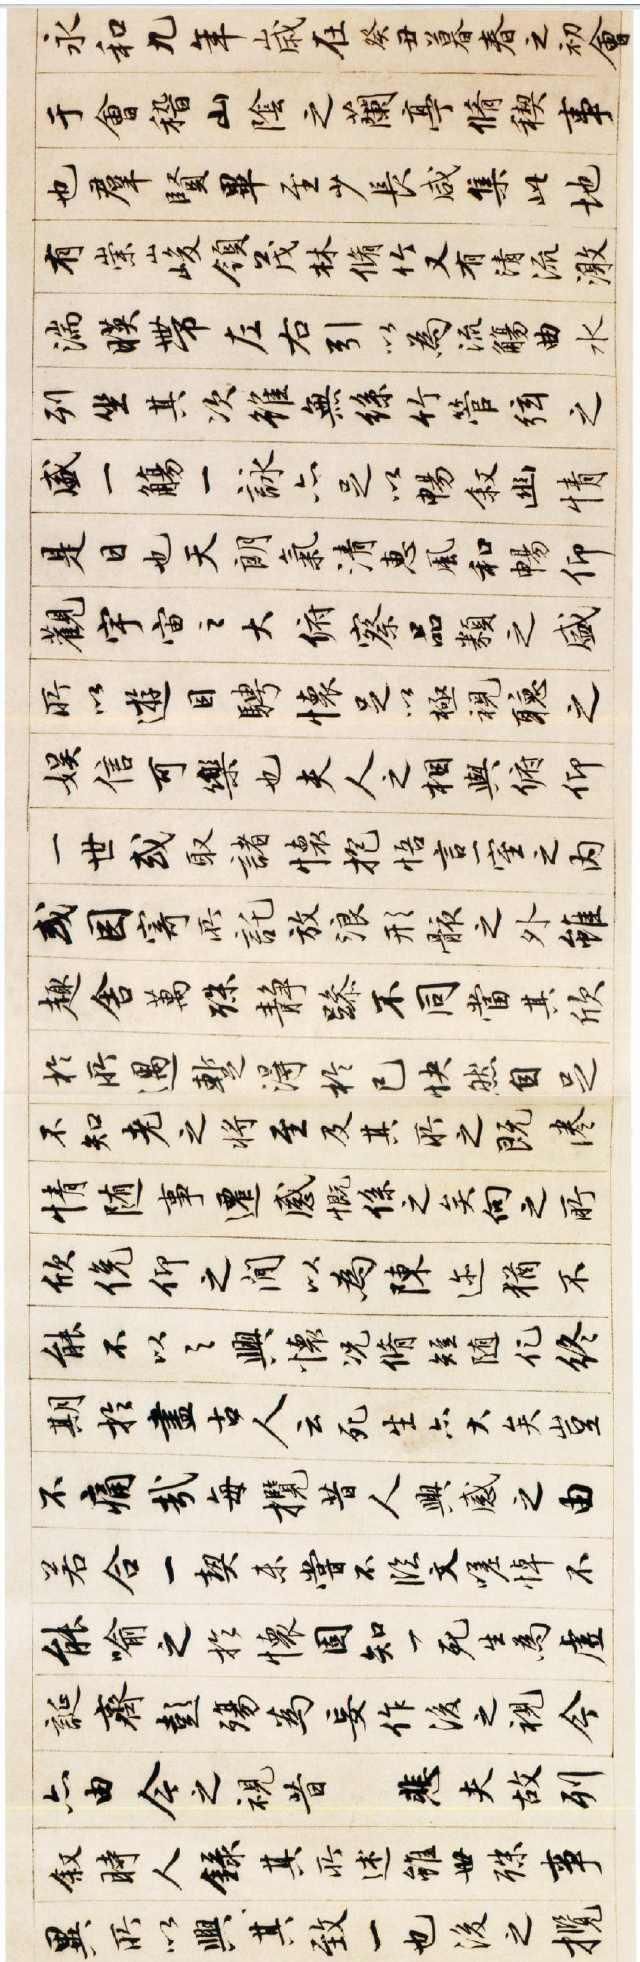 永和九年歲在癸丑暮春之初會
于會稽山陰之蘭亭脩稧事
也羣賢畢至少長咸集此地
有崇山峻領茂林脩竹又有清流激
湍暎帶左右引以為流觴曲水
列坐其次雖無絲竹管弦之
盛一觴一詠亦足以暢叙幽情
是日也天朗氣清惠風和暢仰
觀宇宙之大俯察品類之盛
所以遊目騁懷足以極視聽之
娛信可樂也夫人之相與俯仰
一世或取諸懷抱悟言一室之內
或因寄所託放浪形骸之外雖
趣舍萬殊靜躁不同當其欣
於所遇蹔得於己快然自足
不知老之將至及其所之既惓
情随事遷感慨係之矣向之所
欣俛仰之閒以為陳迹猶不
能不以之興懷况脩短随化終
期於盡古人云死生亦大矣豈
不痛哉每攬昔人興感之由
若合一契未嘗不臨文嗟悼不
能喻之於懷固知一死生為虛
誕齊彭殤為妄作後之視今
亦由今之視昔悲夫故列
叙時人錄其所述雖世殊事
異所以興懷其致一也後之攬